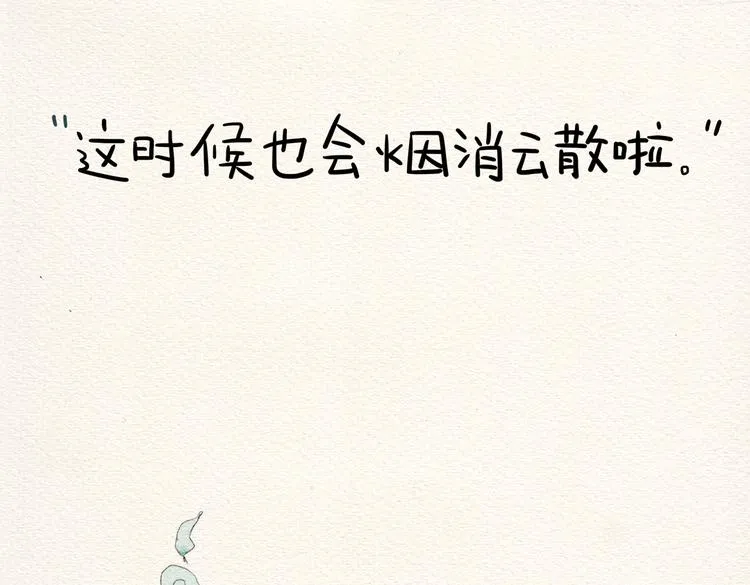 "这时候也会烟消云散啦。"